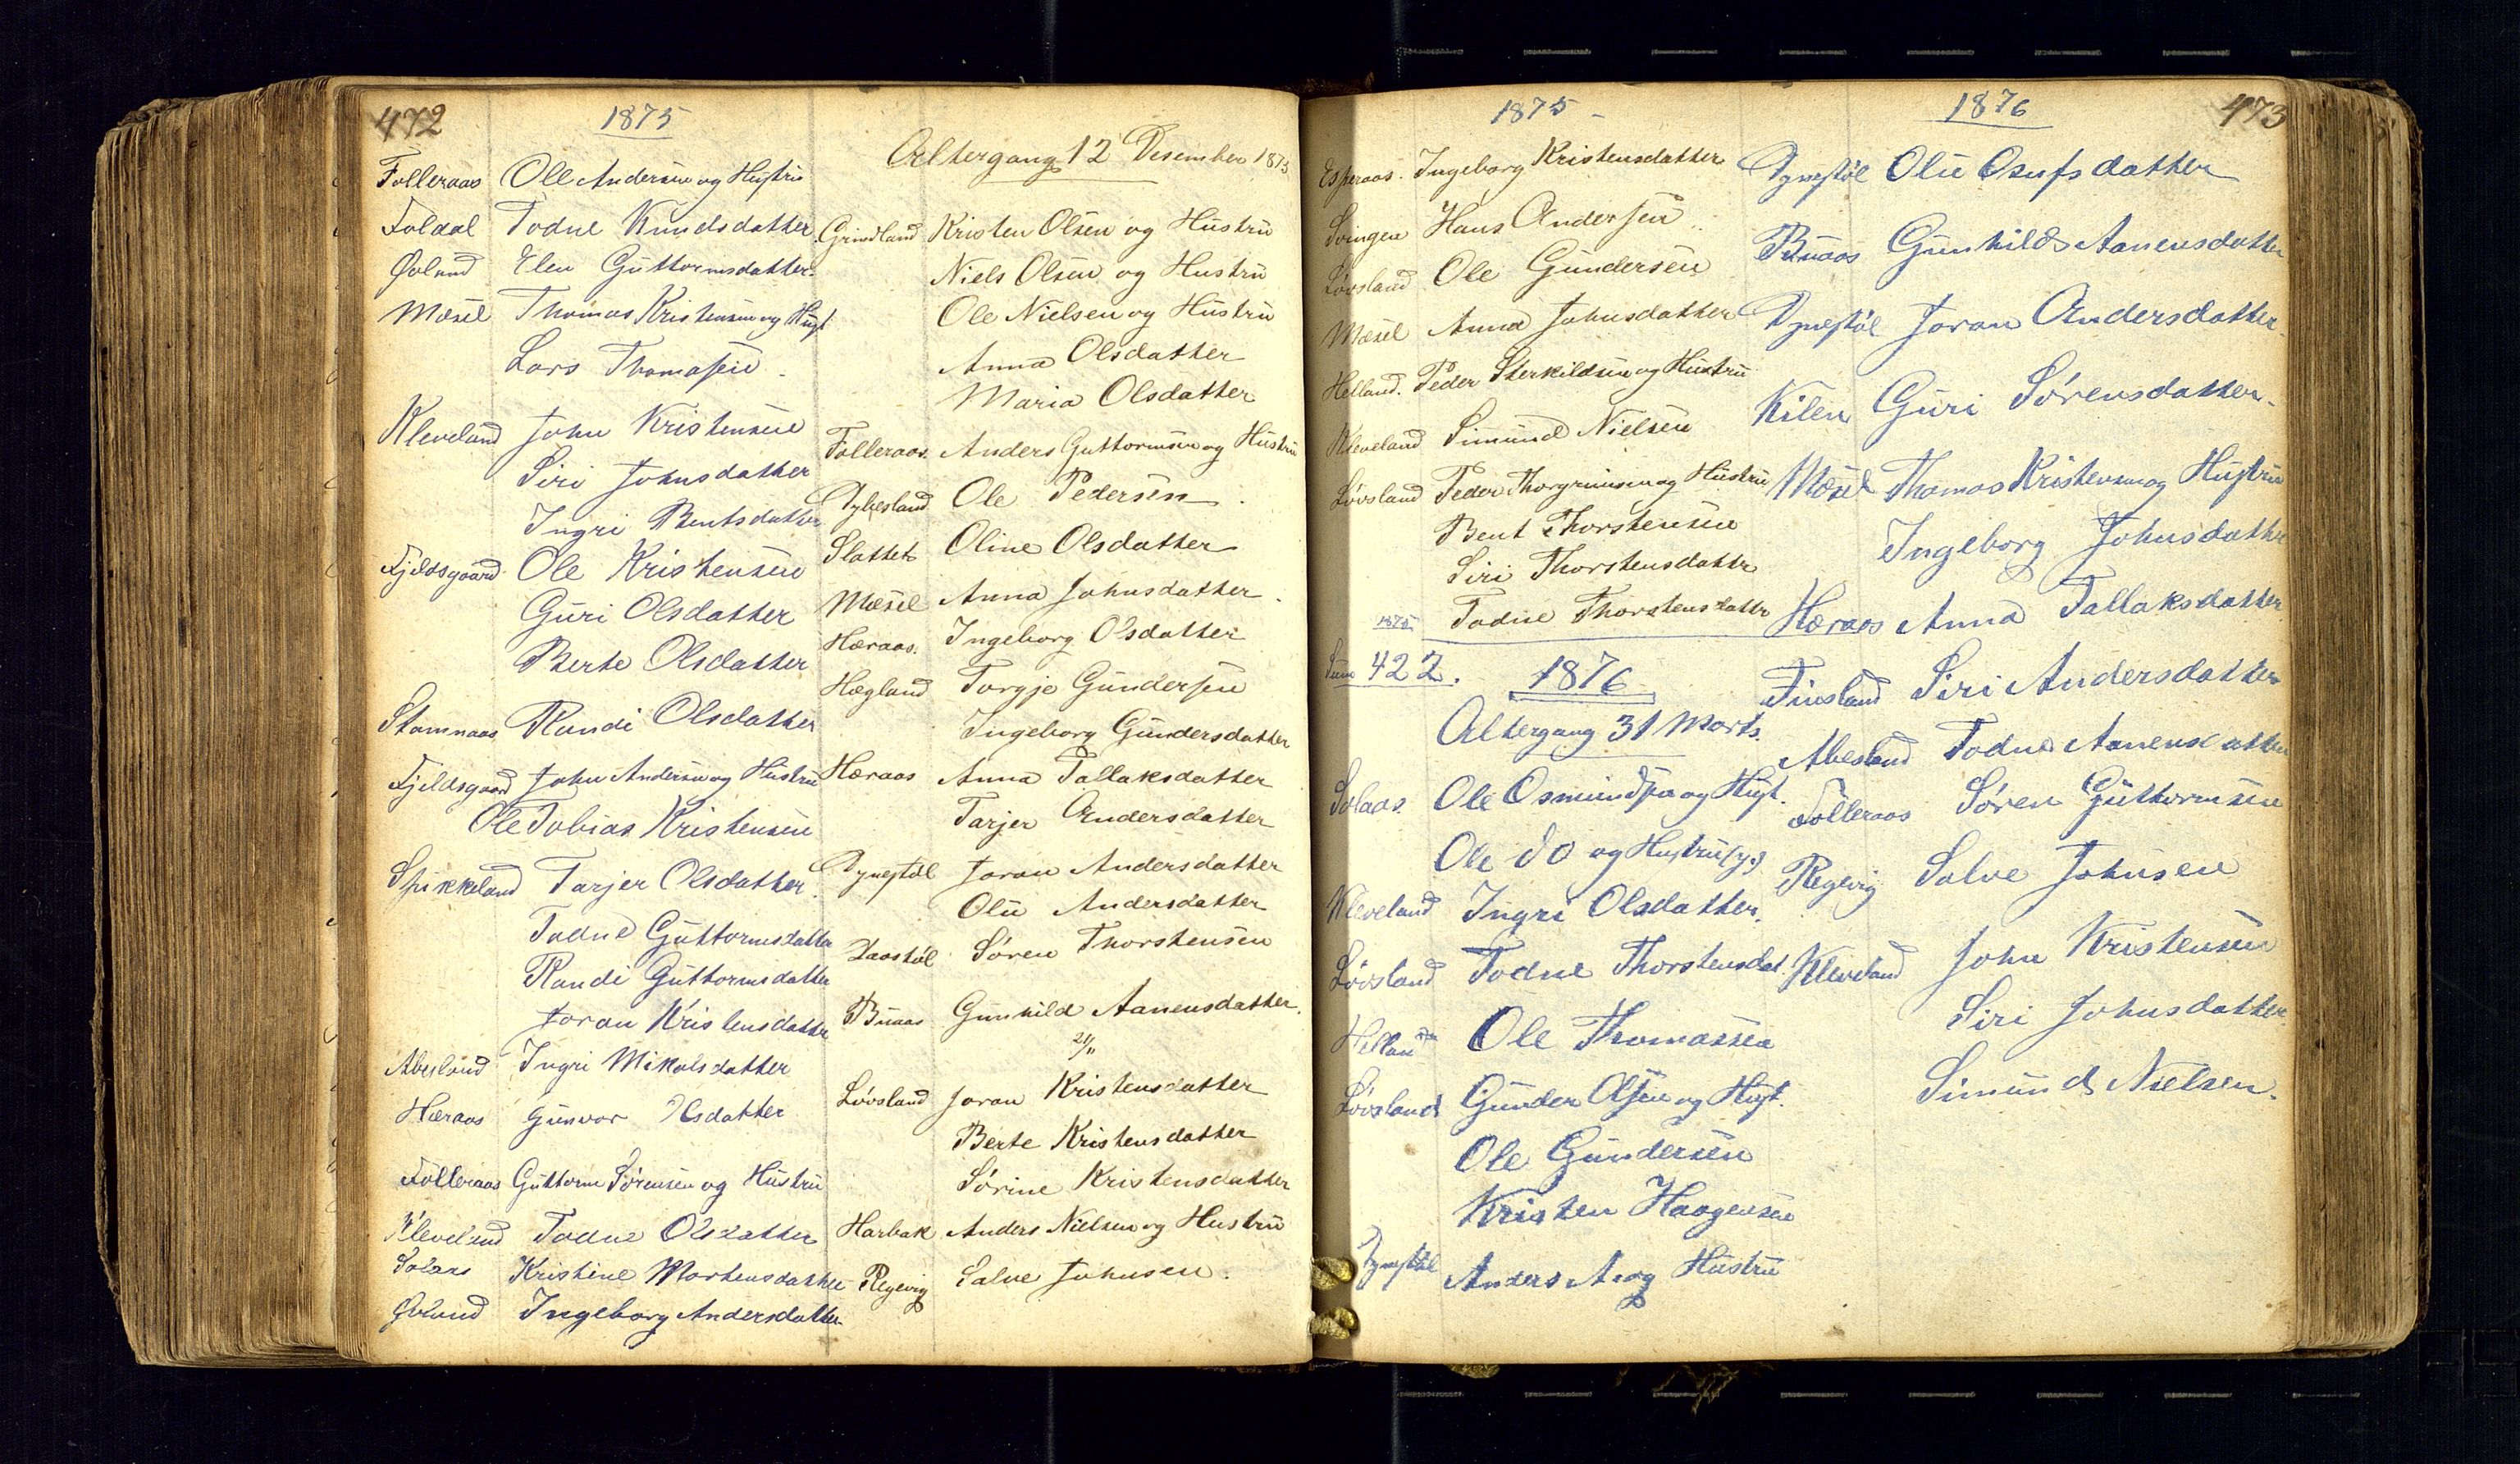 472
1875
Folleraas Ole Andersen og Hustru
Foldal Todne Knudsdatter
Øvland Elen Guttormsdatter
Mæsel Thomas Kristensen og Hust
Lars Thomasen
Kleveland John Kristensen
Siri Johnsdatter
Ingri Bentsdatter
Fjeldsgaard Ole Kristensen
Guri Olsdatter
Berte Olsdatter
Stamnaas Randi Olsdatter
Fjeldsgaard John Andersen og Hustru
Ole Tobias Kristensen
Spikkeland Tarjer Olsdatter
Todne Guttormsdatter
Randi Guttormsdatter
Joran Kristensdatter
Abesland Ingri Mikalsdatter
Hæraas Gunvor Olsdatter
Folleraas Guttorm Sørensen og Hustru
Kleveland Todne Olsdatter
Solaas Kristine Mortensdatter
Øvland Ingeborg Andersdatter
Altergang 12 Desember 1875
Grindland Kristen Olsen og Hustru
Niels Olsen og Hustru
Ole Nielsen og Hustru
Anna Olsdatter
Maria Olsdatter
Folleraas Anders Guttormsen og Hustru
Dybesland Ole Pedersen
Slottet Oline Olsdatter
Mæsel Anna Johnsdatter
Hæraas. Ingeborg Olsdatter
Hægland Torgje Gundersen
Ingeborg Gundersdatter
Hæraas Anna Tallaksdatter
Tarjer Andersdatter
Dynestøl Joran Andersdatter
Olu Andersdatter
Laastøl Søren Thorstensen
Buaas Gunhild Aanensdatter.
21/11
Løvsland Joran Kristensdatter
Berte Kristensdatter
Sørine Kristensdatter
Harbak Anders Nielsen og Hustru
Regevig Salve Johnsen.
1875
Esperaas. Ingeborg Kristensdatter
Svingen Hans Andersen
Løvsland Ole Gundersen
Mæsel Anna Johnsdatter
Helland. Peder Sterkildsen og Hustru
Kleveland Simund Nielsen
Løvsland Peder Thorgrimsen og Hustru
Bent Thorstensen
Siri Thorstensdatter
1875 Todne Thorstensdatter
Sum 422.
1876
Altergang 31 Marts.
Solaas. Ole Osmundsen og Hust.
Ole do og Hustru (y.)
Kleveland Ingri Olsdatter.
Løvsland Todne Thorstensdat.
Helland Ole Thomassen
Løvsland Gunder Olsen og Hust.
Ole Gundersen
Kristen Haagensen
Dynestøl Anders A og Hustru
1876
473
Dynestøl Olu Osufsdatter
Buaas Gunhild Aanensdatter
Dynestøl Joran Andersdatter.
Kilen Guri Sørensdatter.
Mæsel Thomas Kristensen og Hustru
Ingeborg Johnsdatter
Hæraas Anna Tallaksdatter
Finsland Siri Andersdatter
Abesland Todne Aanensdatter
Folleraas Søren Guttormsen
Regevig Salve Johnsen
Kleveland John Kristensen
Siri Johnsdatter
Simund Nielsen.